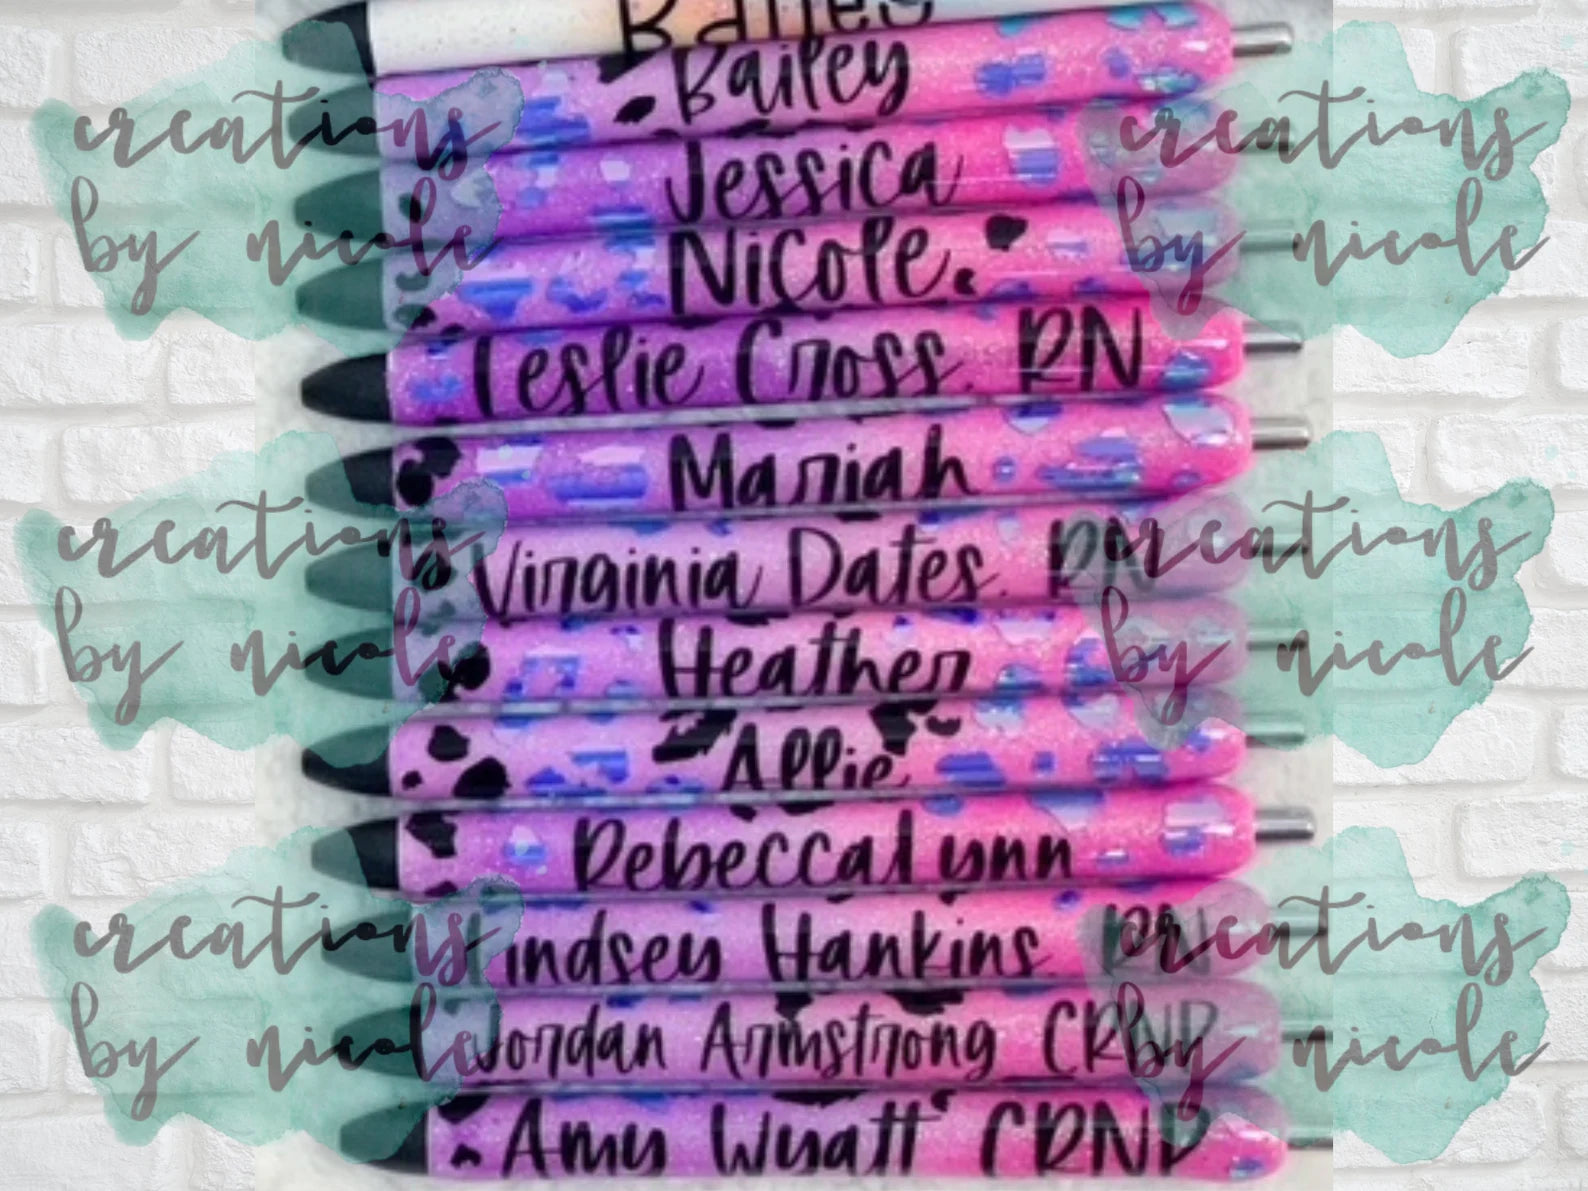 Bailey
Bailey
Jessica
Nicole
Leslie Cross RN
Mariah
Virginia Dates RN
Heather
Allie
RebeccaLynn
Lindsey Hankins RN
Jordan Armstrong CRNP
Amy Wyatt CRNP
creations
by nicole
creations
by nicole
creations
by nicole
creations
by nicole
creations
by nicole
creations
by nicole